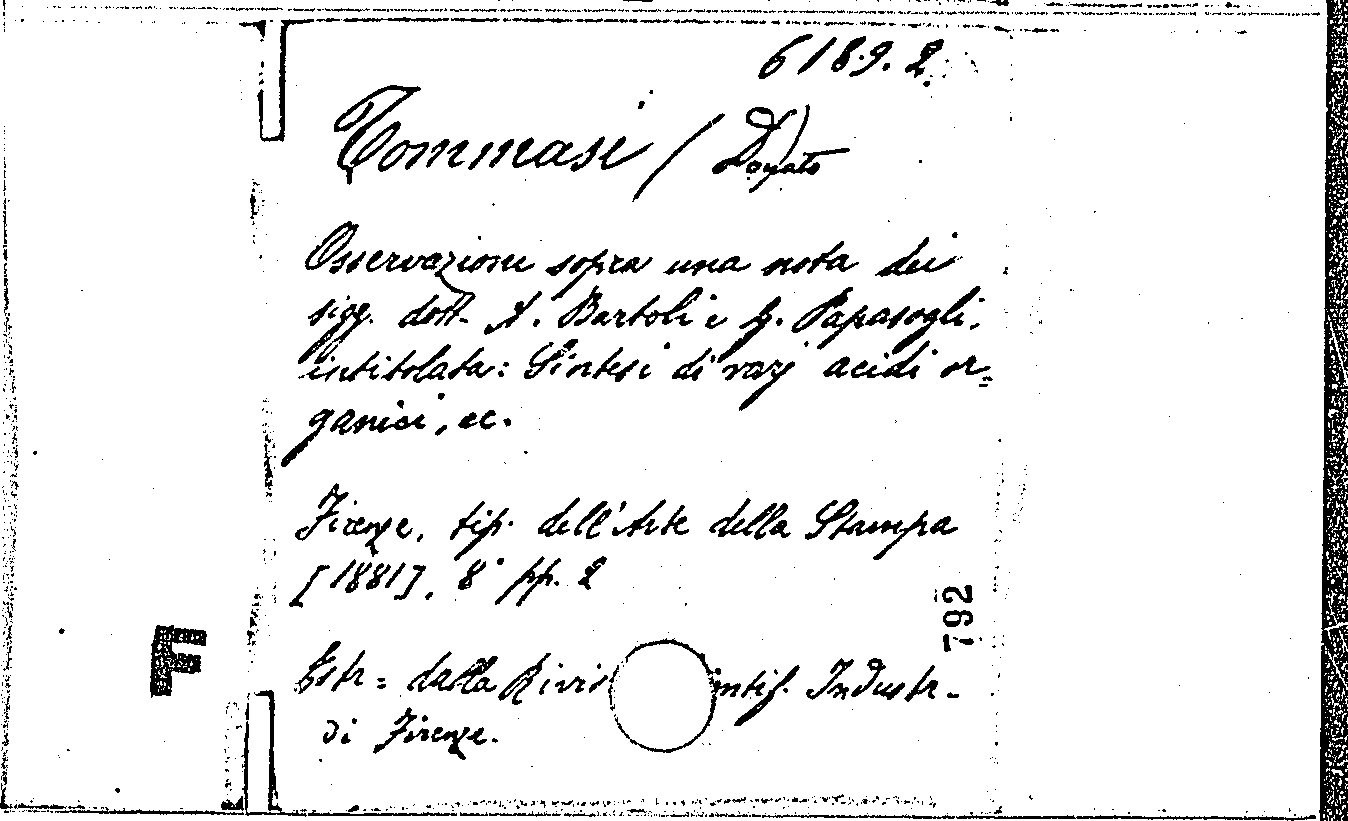 6189.2.
Tommasi (Donato)
Osservazione sopra una nota dei
sigg. dott. A. Bartoli e G. Papasogli,
intitolata: Sintesi di varj acidi or=
ganici, ec.
Firenze, tip. dell'Arte della Stampa
[1881], 8° pp. 2
792
F
Estr= dalla Rivis ntif. Industr-
di Firenze.